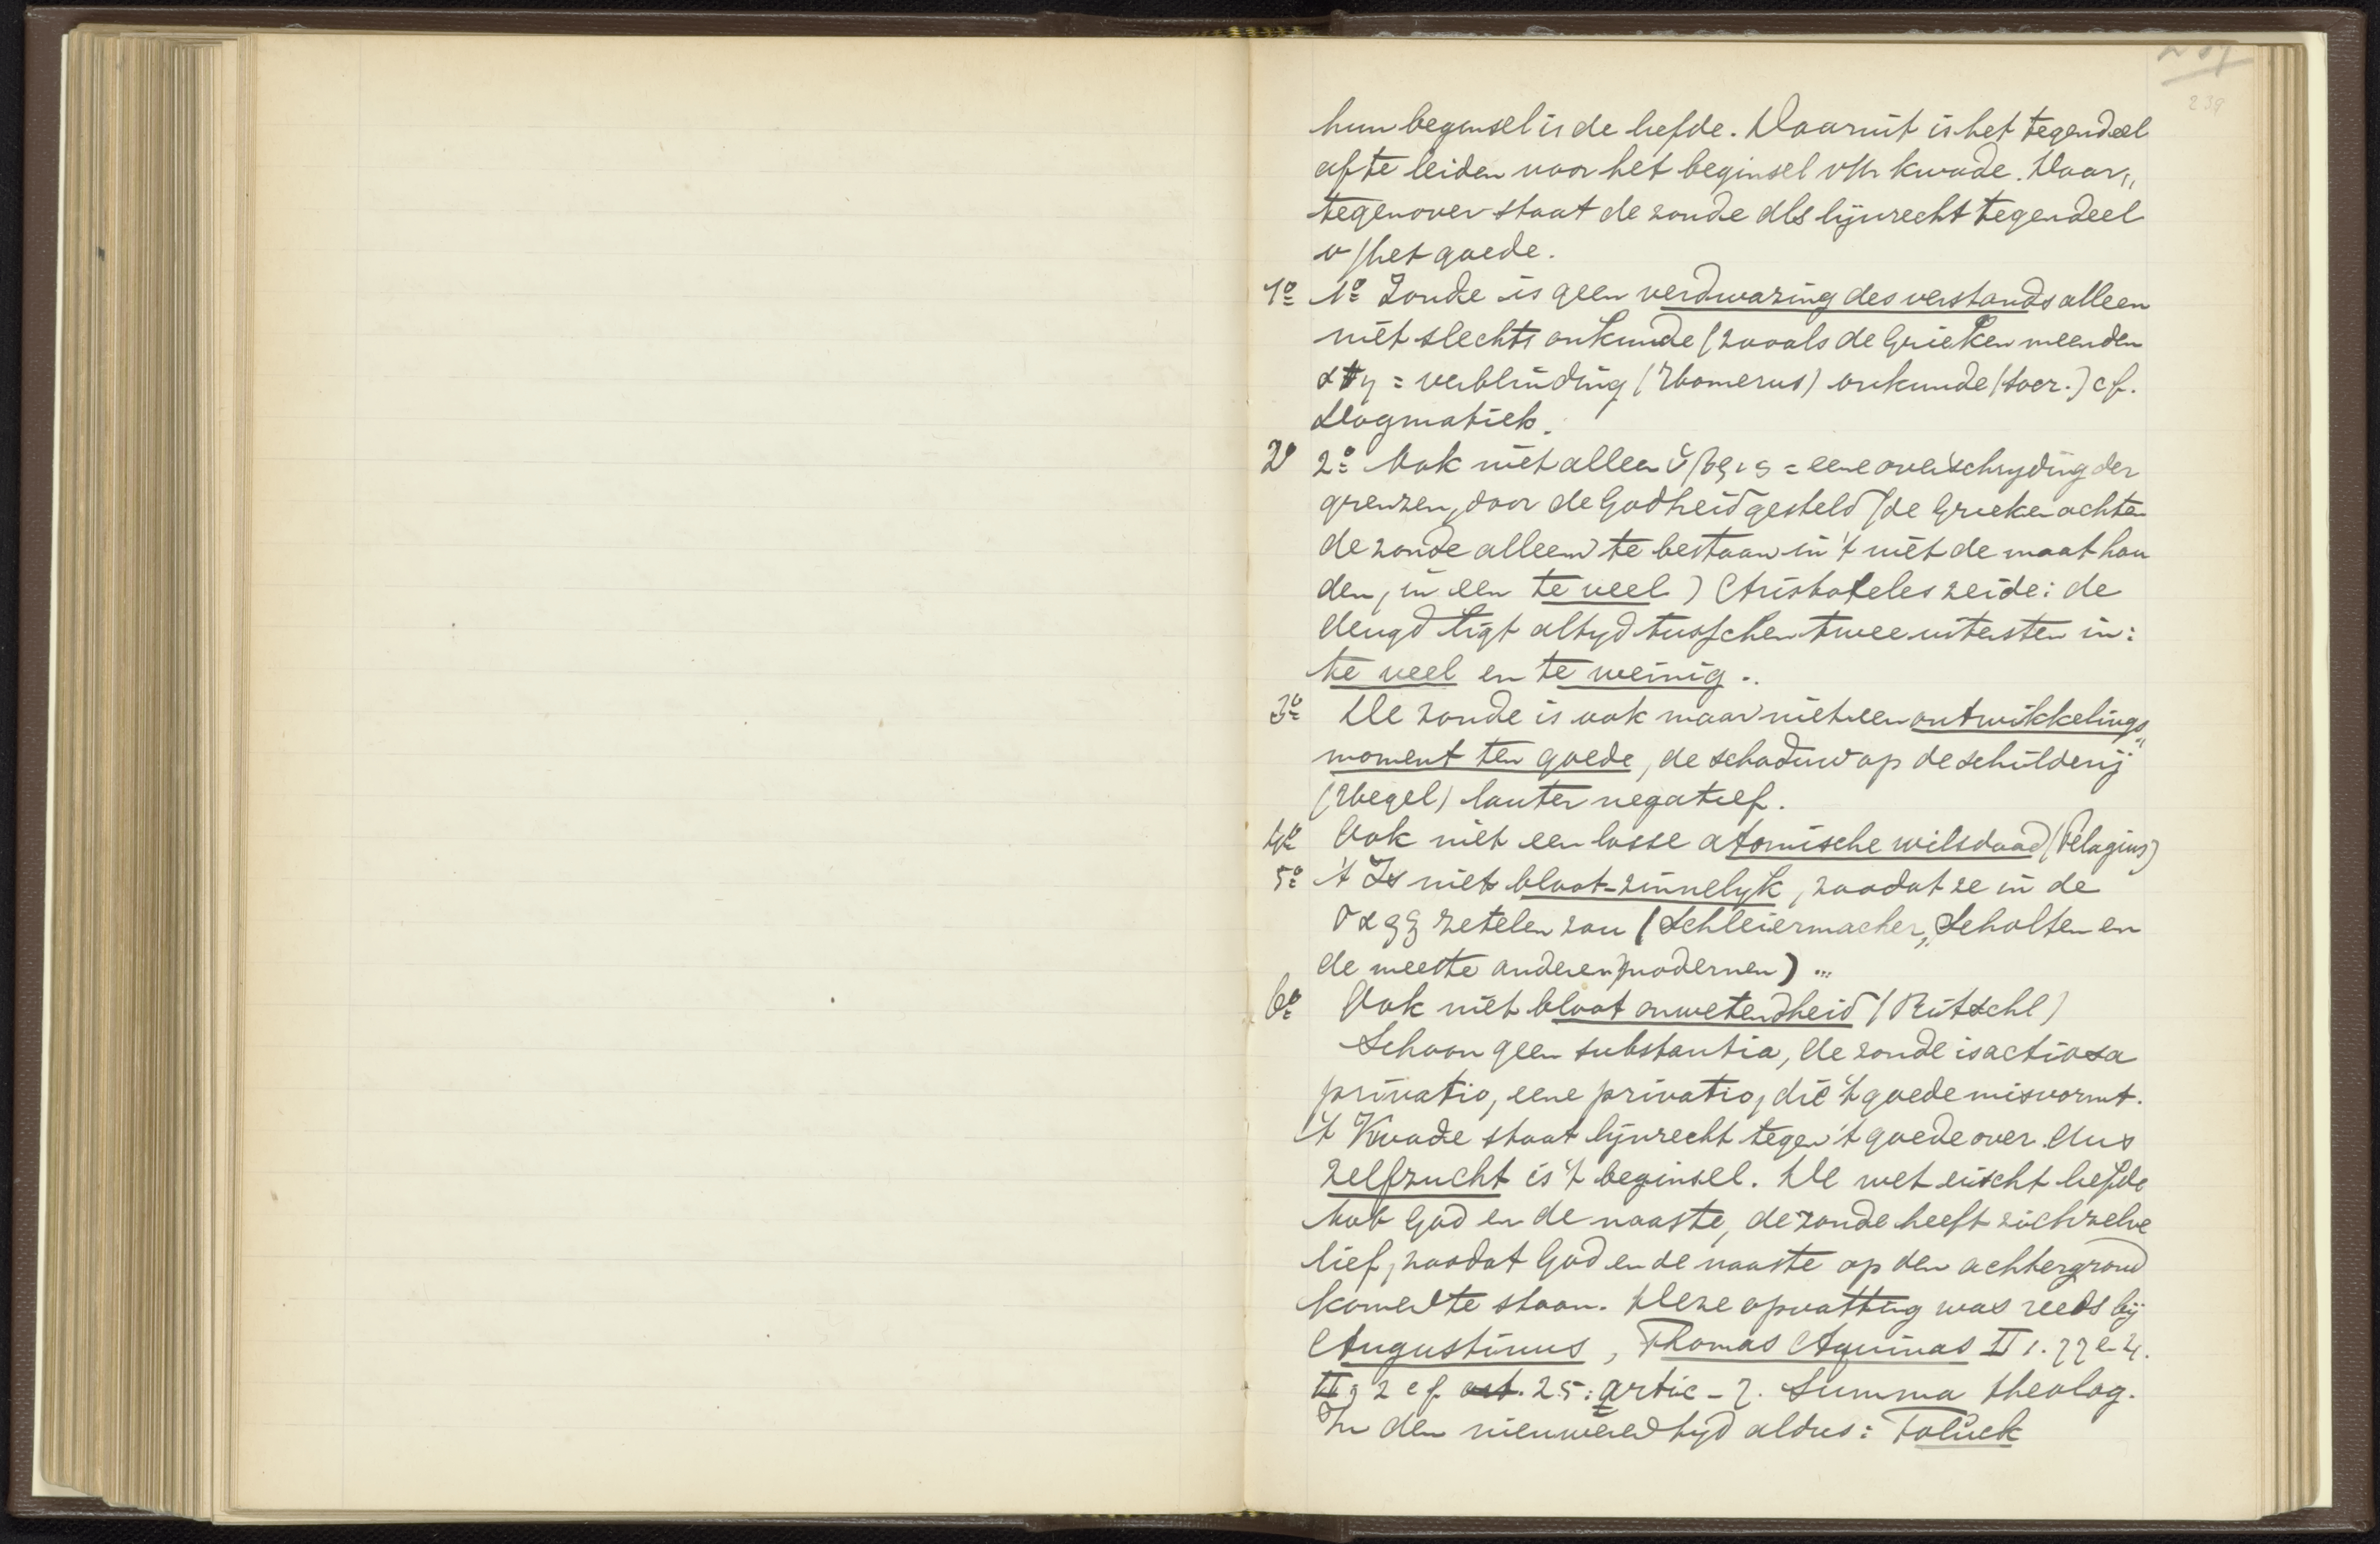 239
hun beginsel is de liefde. Daaruit is het tegendeel
af te leiden voor het beginsel v/h kwade. Daar„
tegenover staat de zonde als lijnrecht tegendeel
v/het goede.
1º 1º Zonde is geen verdwazing des verstands alleen
niet slechts onkunde (zooals de Grieken meenden
ατη = verblinding (Homerus) onkunde (Socr.) cf.
Dogmatiek.
2º 2º Ook niet alleen ὕβρις = eene overschryding der
grenzen, door de Godheid gesteld (de Grieken achten
de zonde alleen te bestaan in 't niet de maat hou
den, in een te veel) Aristoteles zeide: de
deugd ligt altyd tusschen twee uitersten in:
te veel en te weinig.
3º De zonde is ook maar niet een ontwikkelings„
moment ten goede, de schaduw op de schilderij
(Hegel) louter negatief.
4º Ook niet een losse atomische wilsdaad (Pelagius)
5º 't Is niet bloot-zinnelyk, zoodat ze in de
σαρξ zetelen zou (Schleiermacher, Scholten en
de meeste andere modernen) ...
6º Ook niet bloot onwetendheid (Ritschl)
Schoon geen substantia, de zonde is actuosa
privatio, eene privatio, die 't goede misvormt.
't Kwade staat lijnrecht tegen 't goede over dus
zelfzucht is 't beginsel. De wet eischt liefde
tot God en de naaste, de zonde heeft zichzelve
lief, zoodat God en de naaste op den achtergrond
komen te staan. Deze opvatting was reeds bij
Augustinus, Thomas Aquinas II 1. 77 e 4.
II 9 2 cf art. 25: artic - 7. Summa theolog.
In den nieuweren tyd aldus: Toluck